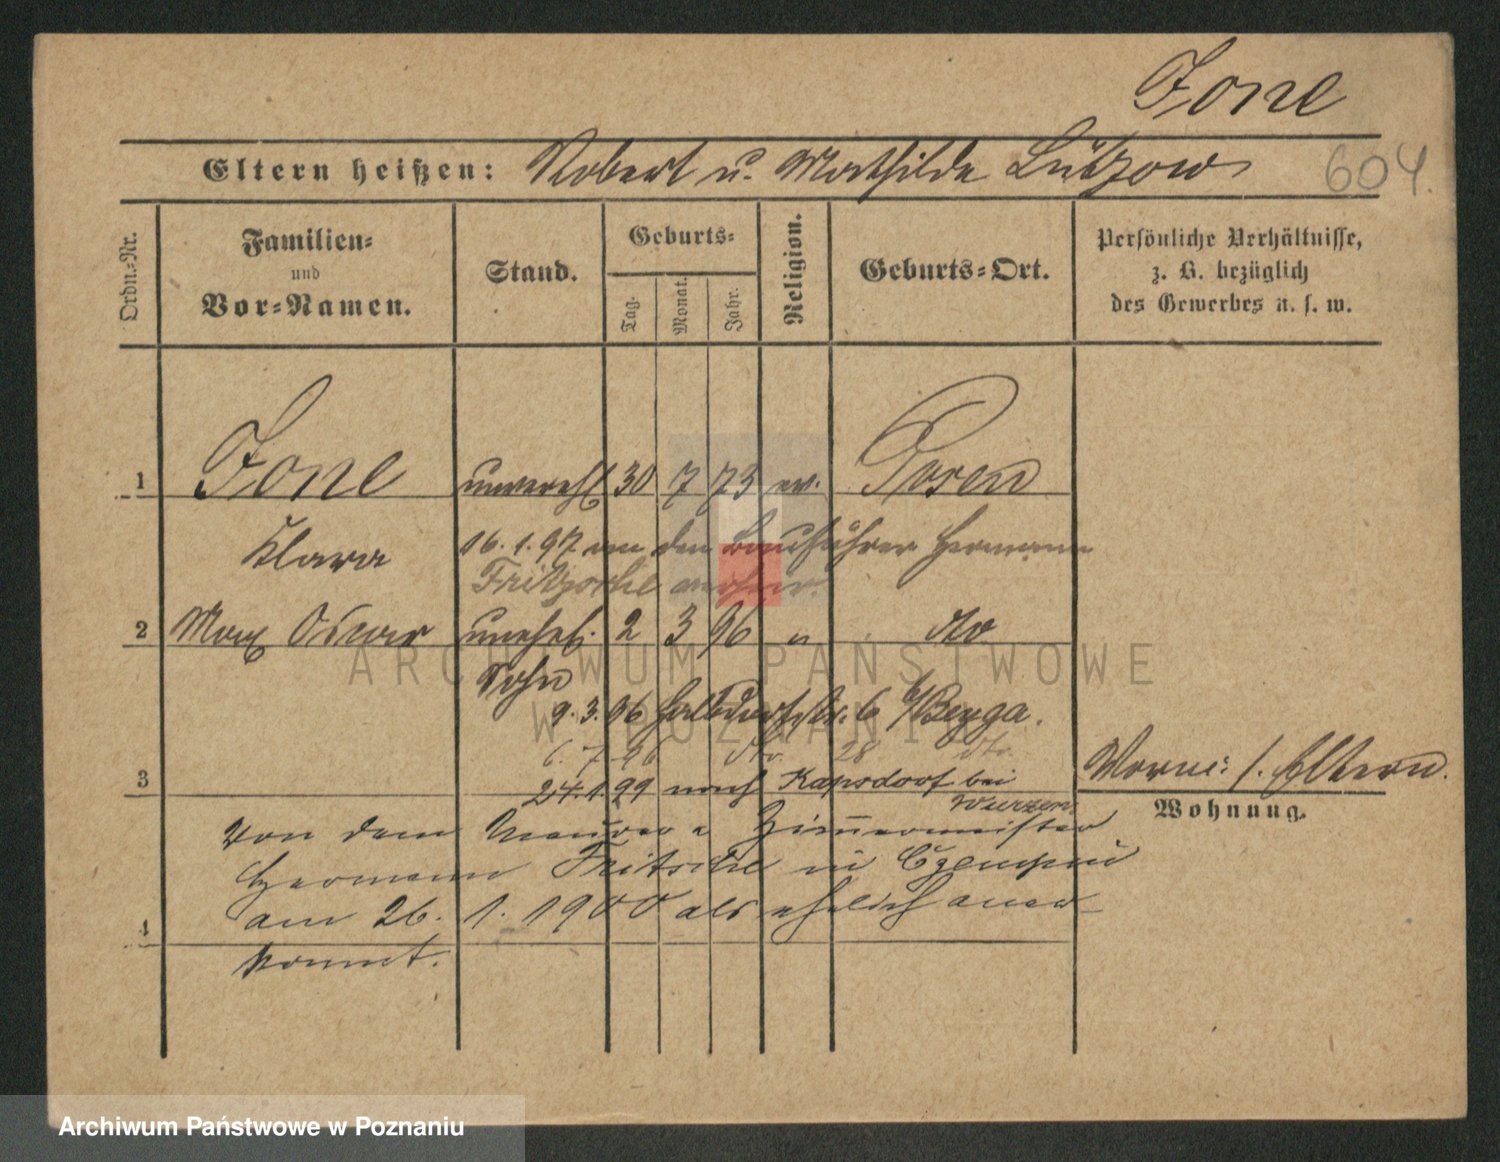 Jone
Eltern heißen: Robert u. Mathilde Lützow 604.
Ordn.-Nr.
Familien-
und
Vor-Namen.
Stand.
Geburts-
Tag.
Monat.
Jahr.
Religion.
Geburts-Ort.
Persönliche Verhältnisse,
z. B. bezüglich
des Gewerbes u. s. w.
1 Jone unverehl 30 7 73 ev. Posen
Klara 16. 1. 97 an den Bauführer Hermann
Fritzsche
2 Max Oscar unehel. 2 3 96 " do
Sohn
9. 3. 96 6 b/Beyga.
6. 7. 96 do. 28 do.
3 24. 1. 99 nach Kapsdorf bei
Wurzen
Vorm: s. Eltern.
Wohnung.
von dem Maurer u Zimmermeister
Hermann Fritsche in Czempin
am 26. 1. 1900 als ehelich aner-
4 kannt.
ARCHIWUM PAŃSTWOWE
W POZNANIU
Archiwum Państwowe w Poznaniu